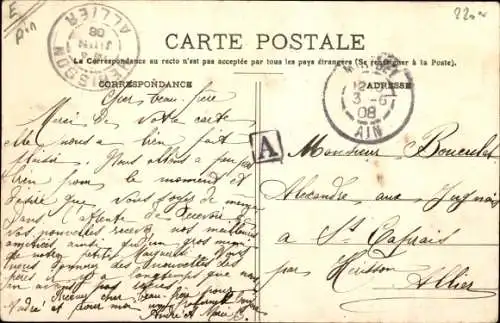 220
E
Ain
HERISSON
JUIN
08
ALLIER
CARTE POSTALE
La Correspondance au recto n'est pas acceptée par tous les pays étrangers (Se renseigner à la Poste).
CORRESPONDANCE
ADRESSE
3 - 6
08
AIN
A
Cher beau-frère
Merci de votre carte
elle nous a bien fait
plaisir. Nous allons à peu près
bien pour le moment et
désire que vous soyez de même
Dans l'attente de recevoir de
vos nouvelles recevez nos meilleures
amitiés ainsi qu'un gros mimi
de notre petite Marguerite. Vous
nous donnerez des nouvelles des
il y a longtemps que nous
en avons pas
Recevez cher beau-frère pour
André et pour moi
André et Marie B.
Monsieur
Alexandre aux
à St Caprais
par Hérisson
Allier